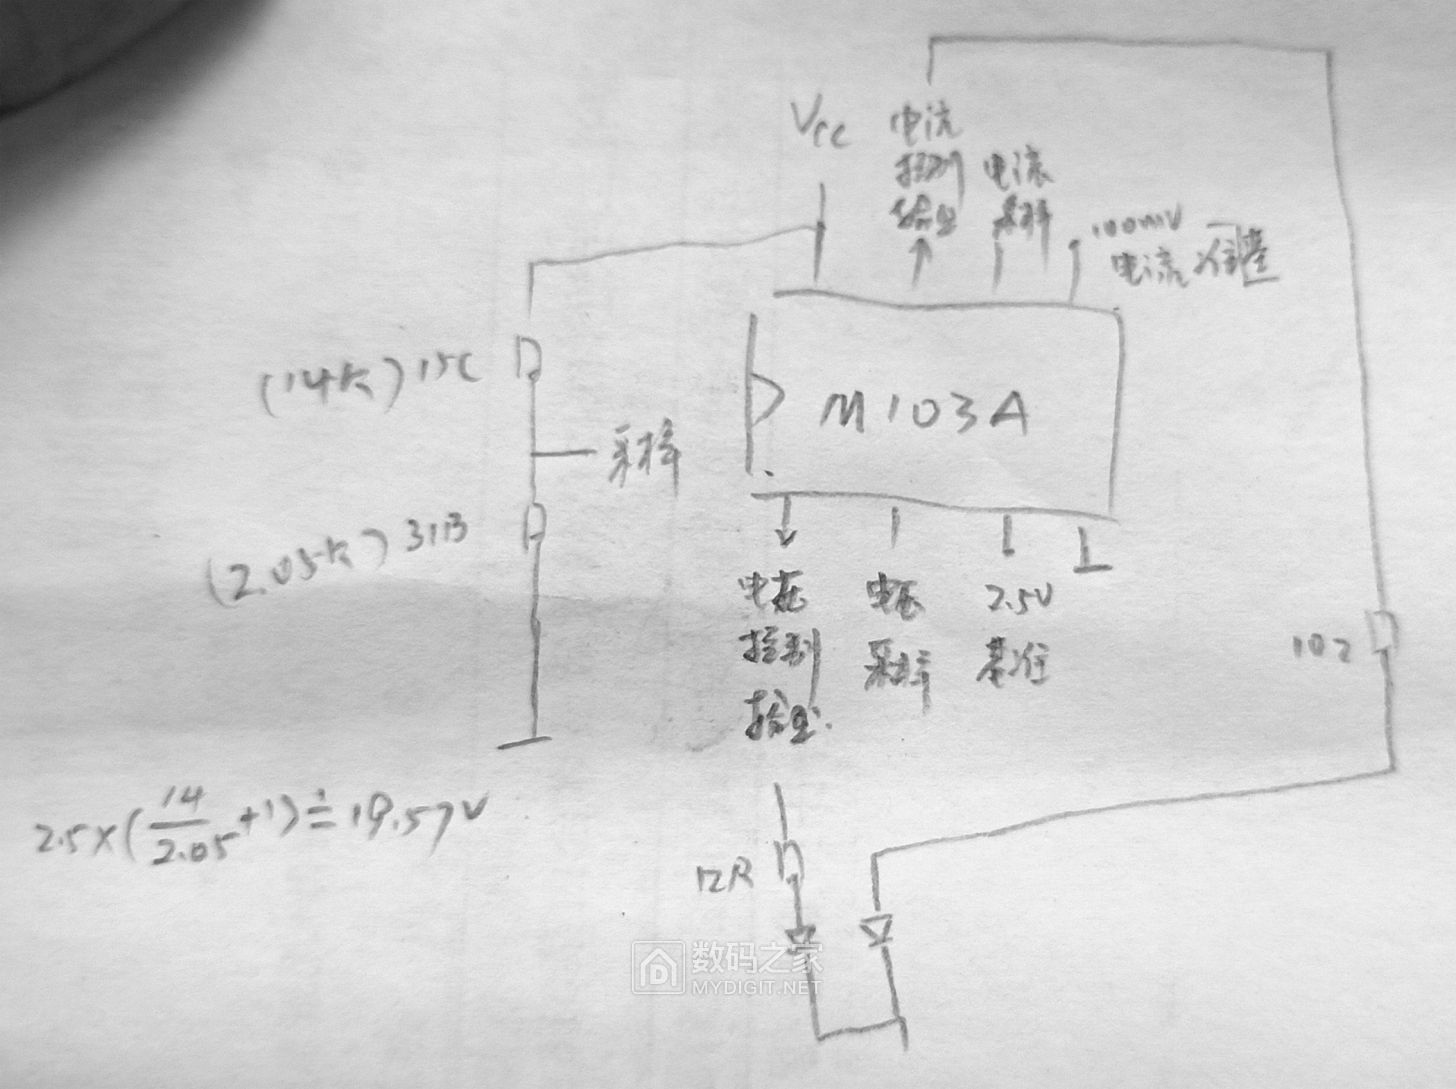 Vcc
电流
控制
输出
电流
采样
100mV
电流准基
(14K) 15C
M103A
采样
(2.05K) 31B
电压
控制
输出
电压
采样
2.5V
基准
102
2.5×(14/2.05+1)≐19.57V
12R
数码之家
MYDIGIT.NET